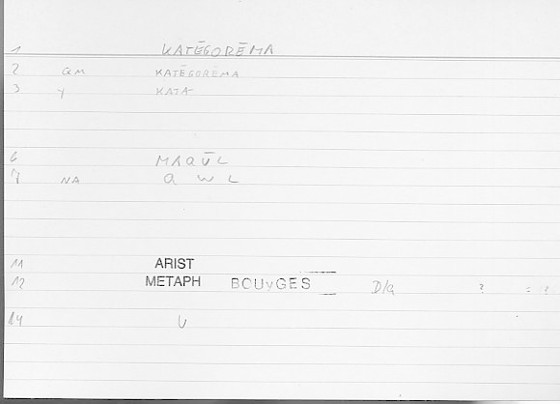 1 KATĒGORĒMA
2 QM KATĒGORĒMA
3 Y KATA
6 MAQŪL
7 NA Q W L
11 ARIST
12 METAPH BOUYGES D/Q ? = ?
14 U